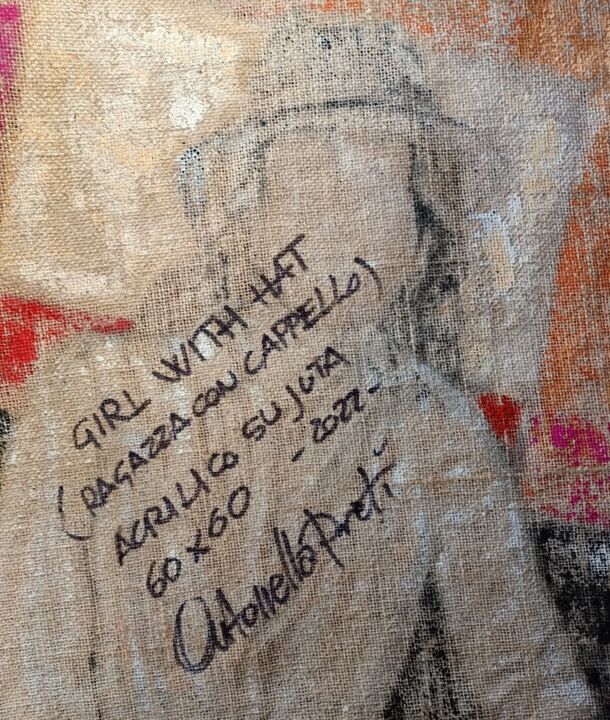 GIRL WITH HAT
(RAGAZZA CON CAPPELLO)
ACRILICO SU JUTA
60x60 -2022-
Antonella Preti